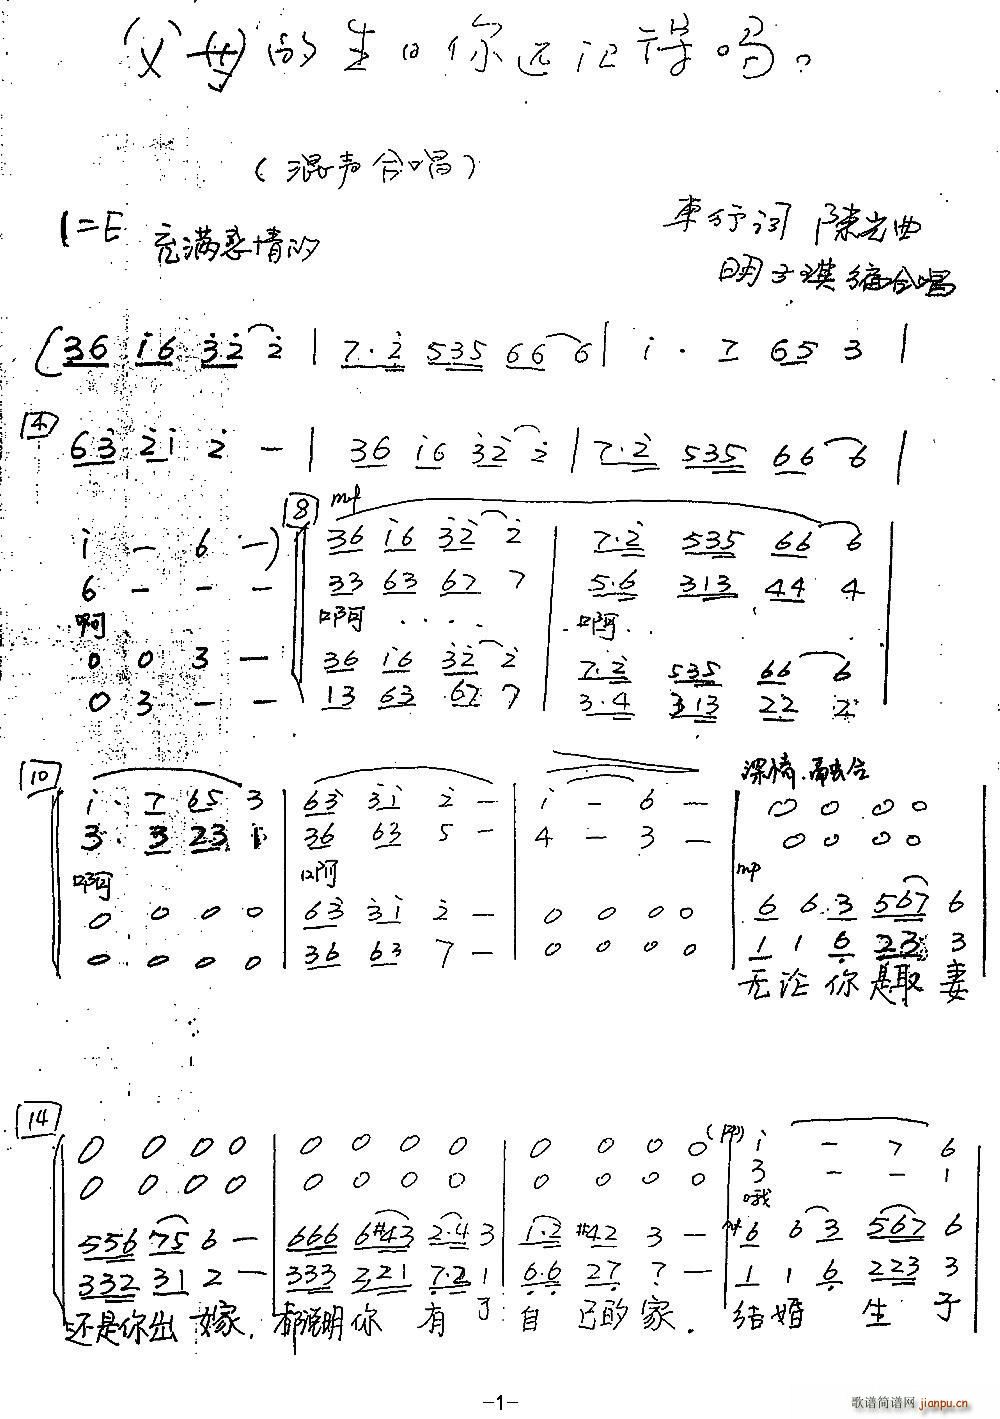 (父母)的生日你还记得吗。
(混声合唱)
1=E 充满感情的
车行词 陈光曲
明子琪编合唱
(36 i6 32 2 | 7·2 535 66 6 | i · 7 65 3 |
4
63 2i 2 — | 36 i6 32 2 | 7·2 535 66 6 |
8 mf
i — 6 —) 36 i6 32 2 | 7·2 535 66 6
6 — — — 33 63 67 7 | 5·6 313 44 4
啊 啊 · · · · 啊 · ·
0 0 3 — 36 i6 32 2 | 7·2 535 66 6
0 3 — — 13 63 67 7 | 3·4 313 22 2
10 深情.融合
i · 7 65 3 | 63 3i 2 — | i — 6 — | 0 0 0 0
3 · 3 23 1 | 36 63 5 — | 4 — 3 — | 0 0 0 0
啊 啊 mp
0 0 0 0 | 63 3i 2 — | 0 0 0 0 | 6 6 3 567 6
0 0 0 0 | 36 63 7 — | 0 0 0 0 | 1 1 6 23 3
无论你是取妻
14
0 0 0 0 | 0 0 0 0 | 0 0 0 0 | (pp) i — 7 6
0 0 0 0 | 0 0 0 0 | 0 0 0 0 | 3 — — 1
哦
556 75 6 — | 666 6#43 2·4 3 | 1·2 #42 3 — | 6 6 3 567 6
332 31 2 — | 333 221 7·2 1 | 6·6 27 7 — | 1 1 6 223 3
还是你出嫁. 都说明你有了自己的家. 结婚生子
-1-
歌谱简谱网 jianpu.cn